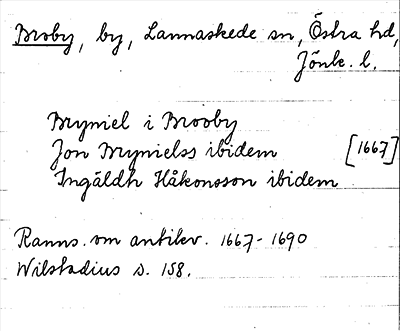 Broby, by, Lannaskede sn, Östra hd,
Jönk. l.
Bryniel i Brooby
Jon Brynielss ibidem [1667]
Ingäldh Håkonsson ibidem
Ranns. om antikv. 1667-1690
Wilstadius s. 158.